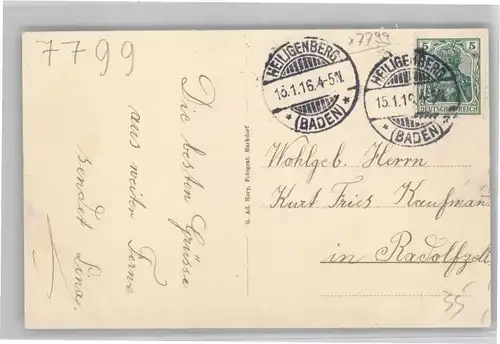 7799
x7799
HEILIGENBERG
15.1.16.4-5N.
* (BADEN) *
HEILIGENBERG
15.1.16
* (BADEN) *
5 5
DEUTSCHES REICH
Die besten Grüsse
aus weiter Ferne
sendet Lina.
G. Ad. Herg, Fotograf. Markdorf
Wohlgeb. Herrn
Kurt Fries Kaufmann
in Radolfzell
35